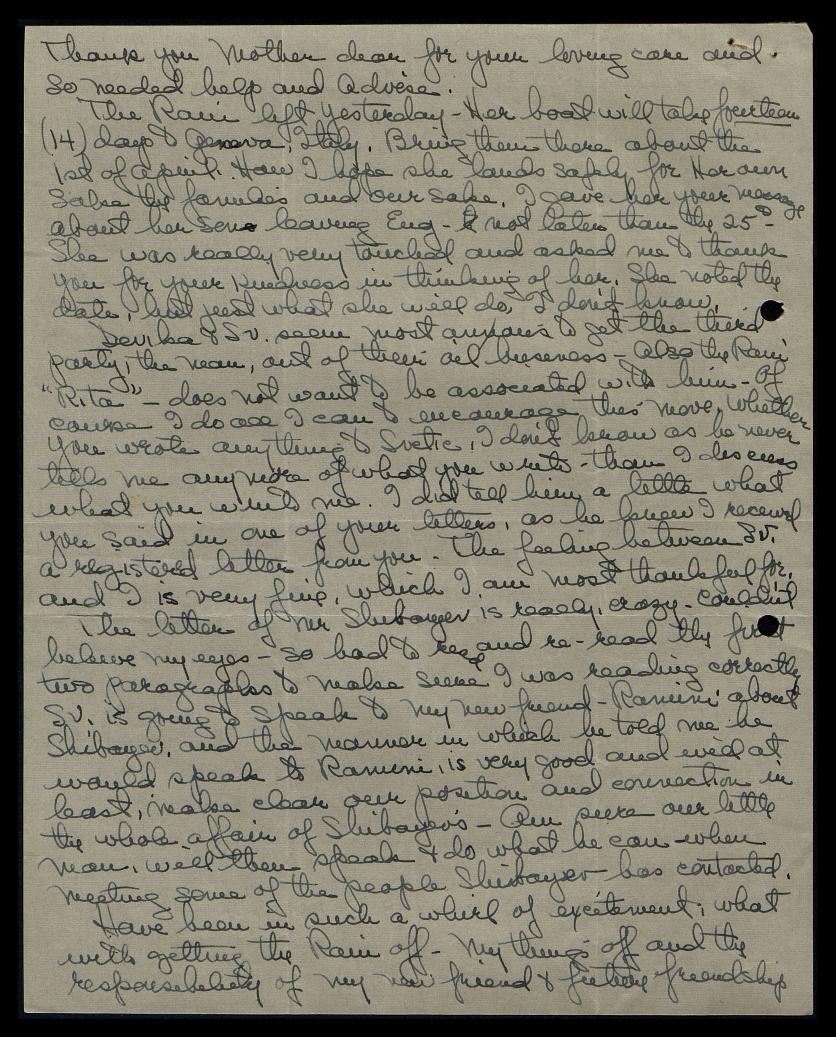 Thank you Mother dear for your loving care and
so needed help and advise.
The Rani left yesterday - Her boat will take fourteen
(14) days to Geneva, Italy. Bring them there about the
1st of April. How I hope she lands safely for Her own
sake the families and our sake. I gave her your message
about her sons leaving Eng - not later than the 25th -
She was really very touched and asked me to thank
you for your kindness in thinking of her. She noted the
date, but just what she will do, I don't know.
Devika & Sv. seem most anxious to get the third
party, the man, out of their oil business - Also the Rani
"Rita" - does not want to be associated with him - Of
course I do all I can to encourage this move. Whether
you wrote anything to Svetic, I don't know as he never
tells me anymore of what you write - than I discuss
what you write me. I did tell him a little what
you said in one of your letters, as he knew I received
a registered letter from you. The feeling between Sv.
and I is very fine, which I am most thankful for.
The letter of Mr Shibayev is really crazy - couldn't
believe my eyes - so had to read and re-read the first
two paragraphs to make sure I was reading correctly
Sv. is going to speak to my new friend - Ramini about
Shibayev, and the manner in which he told me he
would speak to Ramini, is very good and will at
least, make clear our position and connection in
the whole affair of Shibayev's - Am sure our little
man, will then speak & do what he can - when
meeting some of the people Shibayev has contacted.
Have been in such a whirl of excitement, what
with getting the Rani off - My things off and the
responsebelety of my new friend & future friendship